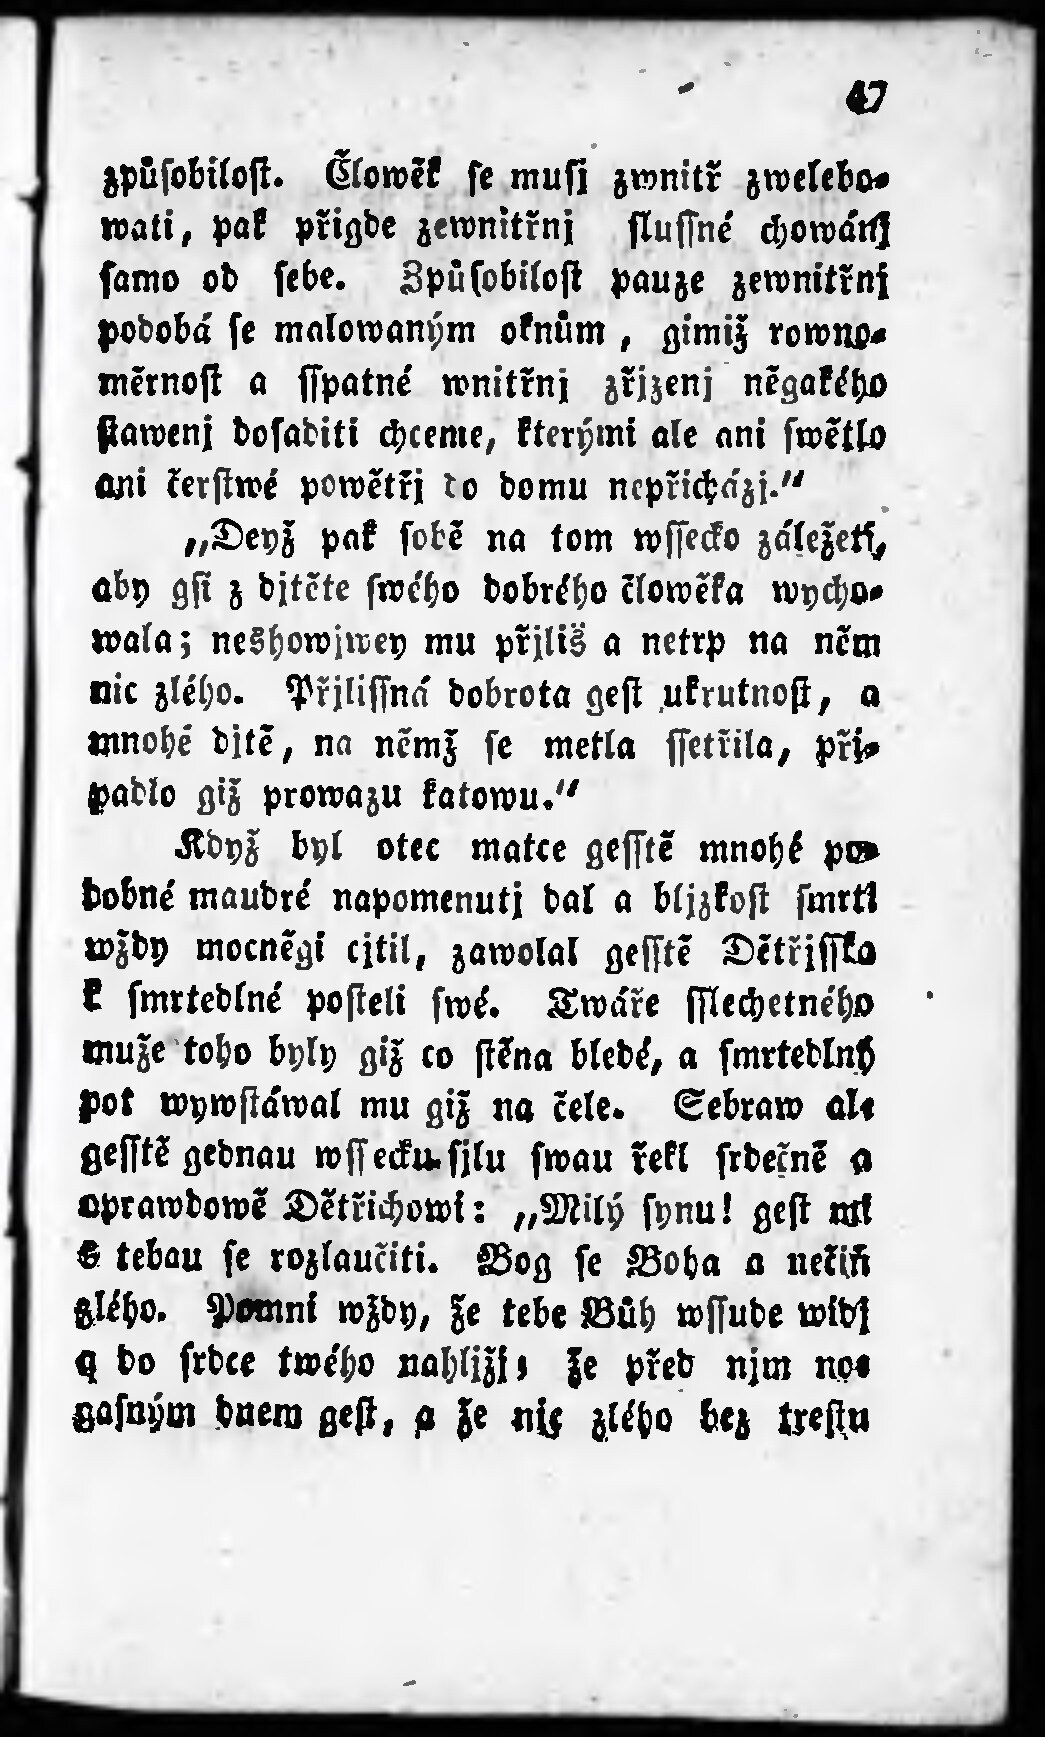 47
způsobilost. Člowěk se musj zwnitř zwelebo-
wati, pak přigde zewnitřnj slussné chowánj
samo od sebe. Způsobilost pauze zewnitřnj
podobá se malowaným oknům, gimiž rowno-
měrnost a sspatné wnitřnj zřjzenj něgakého
stawenj dosaditi chceme, kterými ale ani swětlo
ani čerstwé powětřj do domu nepřicházj.“
„Deyž pak sobě na tom wssecko záležeti,
aby gsi z djtěte swého dobrého člowěka wycho-
wala; neshowjwey mu přjliš a netrp na něm
nic zlého. Přjlissná dobrota gest ukrutnost, a
mnohé djtě, na němž se metla ssetřila, při-
padlo giž prowazu katowu.“
Když byl otec matce gesstě mnohé po-
dobné maudré napomenutj dal a bljzkost smrti
wždy mocněgi cjtil, zawolal gesstě Dětřisska
k smrtedlné posteli swé. Twáře sslechetného
muže toho byly giž co stěna bledé, a smrtedlný
pot wywstáwal mu giž na čele. Sebraw ale
gesstě gednau wssecku sjlu swau řekl srdečně a
oprawdowě Dětřichowi: „Milý synu! gest mi
s tebau se rozlaučiti. Bog se Boha a nečiň
zlého. Pomni wždy, že tebe Bůh wssude widj
a do srdce twého nahljžj; že před njm noc
gasným dnem gest, a že nic zlého bez trestu